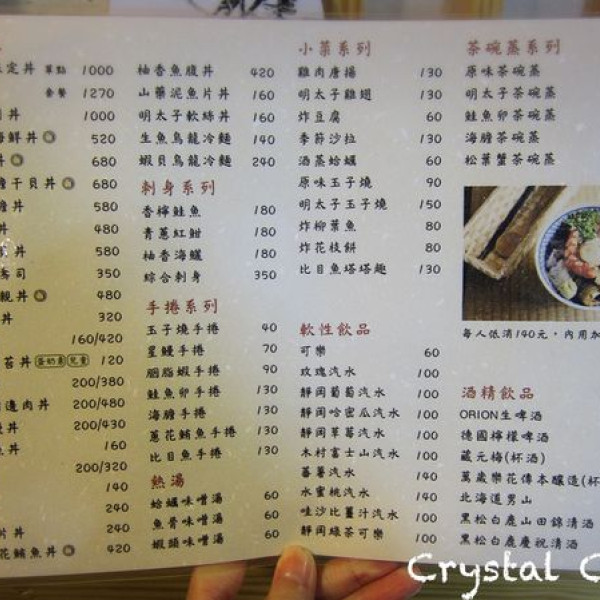 定丼 單點 1000
套餐 1270
丼 1000
海鮮丼 520
丼 680
干貝丼 680
丼 580
丼 480
丼 580
壽司 350
親丼 480
丼 320
160/420
苔丼 蛋奶素 兒童 120
200/380
邊肉丼 200/480
丼 200/430
丼 160
200/320
140
240
片丼 240
花鮪魚丼 420
柚香魚腹丼 420
山藥泥魚片丼 160
明太子軟絲丼 160
生魚烏龍冷麵 140
蝦貝烏龍冷麵 240
刺身系列
香檸鮭魚 180
青蔥紅魽 180
柚香海鱺 180
綜合刺身 350
手捲系列
玉子燒手捲 40
星鰻手捲 70
胭脂蝦手捲 90
鮭魚卵手捲 130
海膽手捲 130
蔥花鮪魚手捲 130
比目魚手捲 130
熱湯
蛤蠣味噌湯 60
魚骨味噌湯 60
蝦頭味噌湯 60
小菜系列
雞肉唐揚 130
明太子雞翅 130
炸豆腐 60
季節沙拉 130
酒蒸蛤蠣 130
原味玉子燒 90
明太子玉子燒 150
炸柳葉魚 80
炸花枝餅 80
比目魚塔塔麵 130
軟性飲品
可樂 60
玫瑰汽水 100
靜岡葡萄汽水 100
靜岡哈密瓜汽水 100
靜岡草莓汽水 100
木村富士山汽水 100
蕃薯汽水 140
水蜜桃汽水 140
哇沙比薑汁汽水 100
靜岡綠茶可樂 100
茶碗蒸系列
原味茶碗蒸
明太子茶碗蒸
鮭魚卵茶碗蒸
海膽茶碗蒸
松葉蟹茶碗蒸
每人低消140元，內用加
酒精飲品
ORION生啤酒
德國檸檬啤酒
藏元梅(杯酒)
萬歲樂花傳本釀造(杯
北海道男山
黑松白鹿山田錦清酒
黑松白鹿慶祝清酒
Crystal C